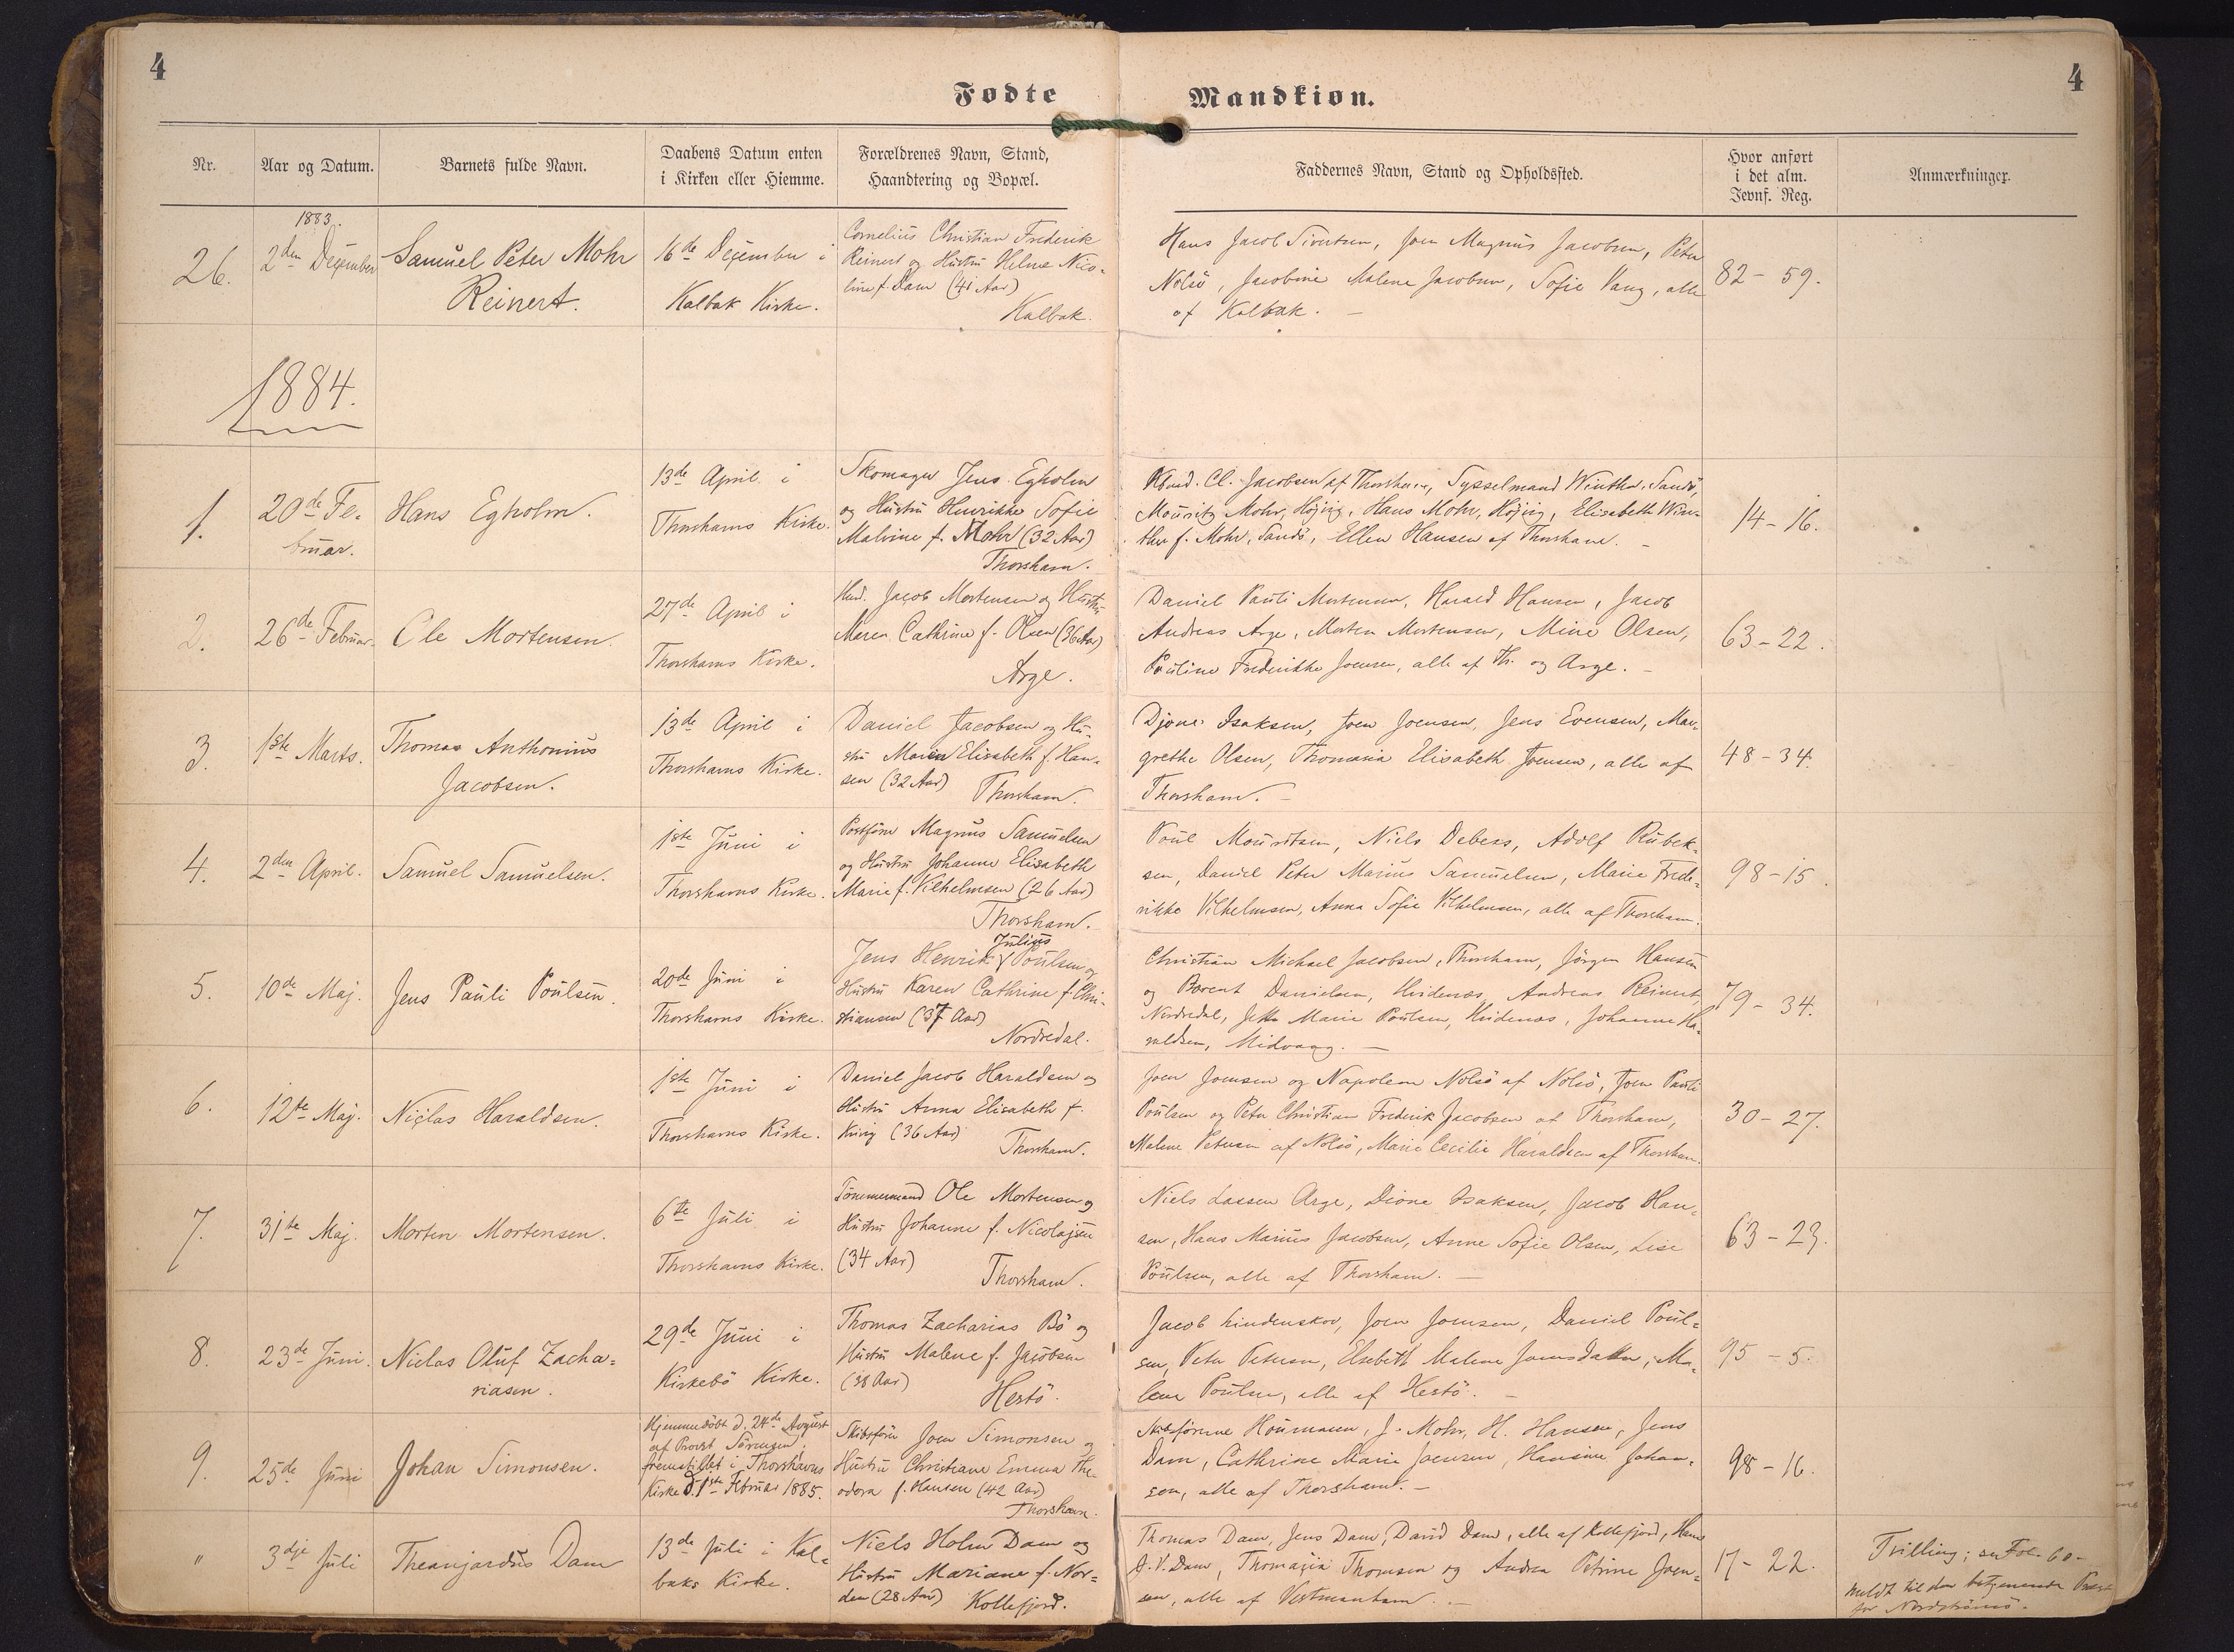 4
4
Fødte
Mandkiøn.
Nr.
Aar og Datum.
Barnets fulde Navn.
Daabens Datum enten
i Kirken eller Hiemme.
Forældrenes Navn, Stand,
Haandtering og Bopæl.
Faddernes Navn, Stand og Opholdssted.
Hvor anført
i det alm.
Jevnf. Reg.
Anmærkninger.
26.
1883.
2den December
Samuel Peter Mohr
Reinert.
16de December i
Kalbak Kirke.
Cornelius Christian Frederik
Reinert og Hustru Helene Nico-
line f. Dam (41 Aar)
Kalbak.
Hans Jacob Sivertsen, Joen Magnus Jacobsen, Peter
Nolsö, Jacobine Malene Jacobsen, Sofie Vang, alle
af Kalbak. -
82 - 59.
1884.
1.
20de Fe-
bruar.
Hans Egholm.
13de April i
Thorshavns Kirke.
Skomager Jens Egholm
og Hustru Henrikke Sofie
Malvine f. Mohr (32 Aar)
Thorshavn.
Cl. Jacobsen af Thorshavn, Sysselmand Winther, Sandö,
Mouritz Mohr, Höjvig, Hans Mohr, Höjvig, Elisabeth Win-
ther f. Mohr, Sandö, Ellen Hansen af Thorshavn. -
14 - 16.
2.
26de Februar.
Ole Mortensen.
27de April i
Thorshavns Kirke.
Jacob Mortensen og Hustru
Maren Cathrine f. Olsen (36 Aar)
Arge.
Daniel Pauli Mortensen, Harald Hansen, Jacob
Andreas Arge, Morten Mortensen, Mine Olsen,
Pouline Frederikke Joensen, alle af Th. og Arge. -
63 - 22.
3.
1ste Marts.
Thomas Anthonius
Jacobsen.
13de April i
Thorshavns Kirke.
Daniel Jacobsen og Hu-
stru Maren Elisabeth f. Han-
sen (32 Aar)
Thorshavn.
Djone Isaksen, Joen Joensen, Jens Evensen, Mar-
grethe Olsen, Thomasia Elisabeth Joensen, alle af
Thorshavn. -
48 - 34.
4.
2den April.
Samuel Samuelsen.
1ste Juni i
Thorshavns Kirke.
Postförer Magnus Samuelsen
og Hustru Johanne Elisabeth
Marie f. Vilhelmsen (26 Aar)
Thorshavn.
Poul Mouritsen, Niels Debess, Adolf Rubek-
sen, Daniel Peter Marius Samuelsen, Marie Frede-
rikke Vilhelmsen, Anna Sofie Vilhelmsen, alle af Thorshavn.
98 - 15.
5.
10de Maj.
Jens Pauli Poulsen.
20de Juni i
Thorshavns Kirke.
Julius
Jens Henrik Poulsen og
Hustru Karen Cathrine f. Chri-
stiansen (37 Aar)
Nordredal.
Christian Michael Jacobsen, Thorshavn, Jörgen Hansen
og Berent Danielsen, Hvidenæs, Andreas Reinert,
Nordredal, Marie Poulsen, Hvidenæs, Johanne Ha-
raldsen, Midvaag. -
79 - 34.
6.
12te Maj.
Niclas Haraldsen.
1ste Juni i
Thorshavns Kirke.
Daniel Jacob Haraldsen og
Hustru Anna Elisabeth f.
(36 Aar)
Thorshavn.
Joen Joensen og Napoleon Nolsö af Nolsö, Joen Pauli
Poulsen og Peter Christian Frederik Jacobsen af Thorshavn,
Malene Petersen af Nolsö, Marie Cecilie Haraldsen af Thorshavn.
30 - 27.
7.
31te Maj.
Morten Mortensen.
6te Juli i
Thorshavns Kirke.
Tömmermand Ole Mortensen og
Hustru Johanne f. Nicolajsen
(34 Aar)
Thorshavn.
Niels Lassen Arge, Dione Isaksen, Jacob Han-
sen, Hans Marius Jacobsen, Anne Sofie Olsen, Lise
Poulsen, alle af Thorshavn. -
63 - 23.
8.
23de Juni.
Niclas Oluf Zacha-
riasen.
29de Juni i
Kirkebö Kirke.
Thomas Zacharias Bö og
Hustru Malene f. Jacobsen
(38 Aar)
Hestö.
Jacob Lindenskov, Joen Joensen, Daniel Poul-
sen, Peter Petersen, Elsebeth Malene Joensdatter, Ma-
lene Poulsen, alle af Hestö. -
95 - 5.
9.
25de Juni
Johan Simonsen.
Hjemmedöbt d. 24de August
af Provst Sörensen,
fremstillet i Thorshavns
Kirke d. 1ste Februar 1885.
Skibsförer Joen Simonsen og
Hustru Christiane Emma The-
odora f. Hansen (42 Aar)
Thorshavn.
Skibsförerne Houmann, J. Mohr, H. Hansen, Jens
Dam, Cathrine Marie Joensen, Hansine Johan-
sen, alle af Thorshavn. -
98 - 16.
"
3dje Juli
Theanjardus Dam
13de Juli i Kal-
baks Kirke.
Niels Holm Dam og
Hustru Mariane f. Nor-
den (28 Aar)
Kollefjord.
Thomas Dam, Jens Dam, David Dam, alle af Kollefjord, Hans
J. V. Dam, Thomasia Thomsen og Andrea Petrine Joen-
sen, alle af Vestmanhavn. -
17 - 22.
Tvilling; se Fol. 60 -
meldt til den betjenende Præst
for Nordströmö.